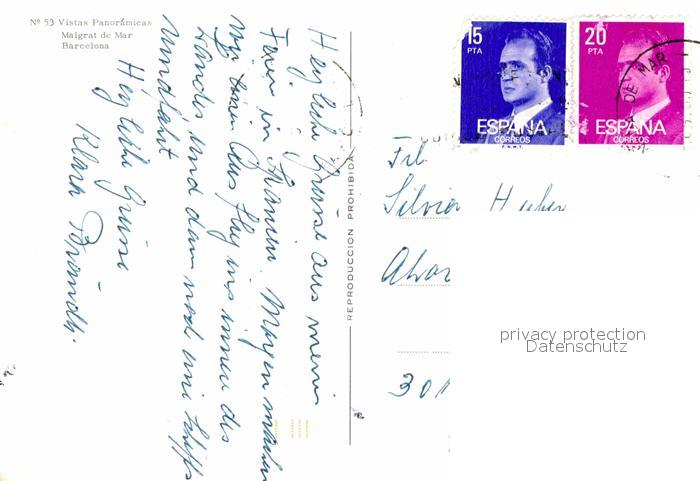 Nº 53 Vistas Panorámicas
Malgrat de Mar
Barcelona
Herzliche Grüsse aus mein
Ferien in Spanien. Morgen machen
wir einen Ausflug ins innere des
Landes und dann noch eine Schiffs
rundfahrt
Herzliche Grüsse
Klara
REPRODUCCION PROHIBIDA
15
PTA
ESPAÑA
CORREOS
F.N.M.T.
20
PTA
ESPAÑA
CORREOS
F.N.M.T.
DE MAR
Frl.
Silvia Huber
301
privacy protection
Datenschutz